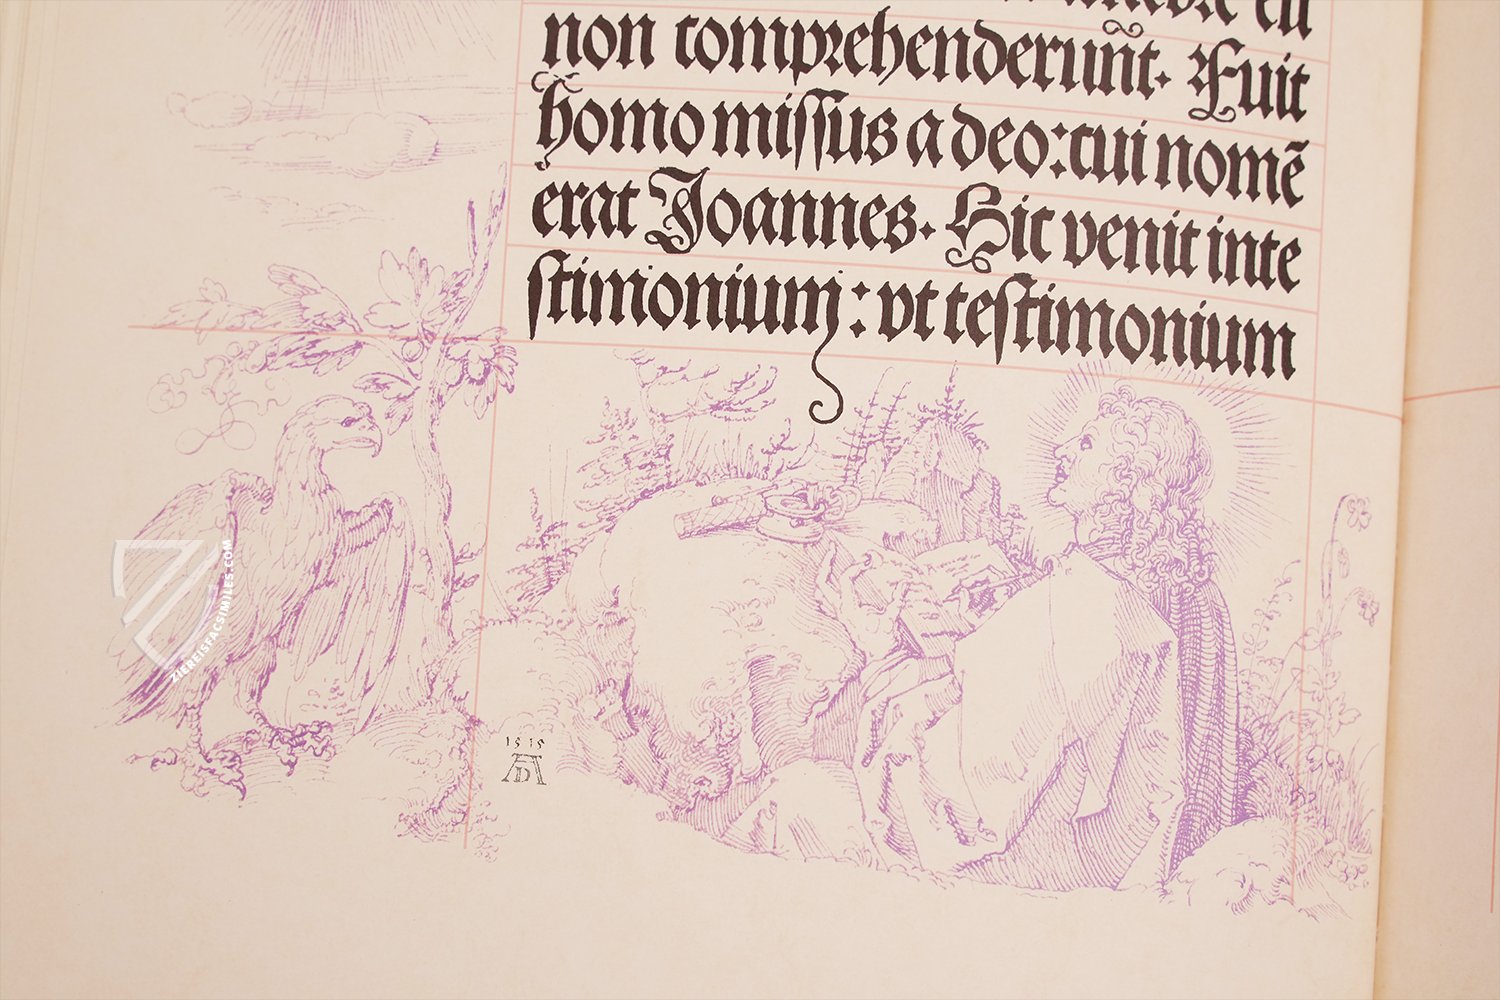 non comprehenderun̄t. Fuit
homo miſſus a deo: cui nomē
erat Joannes. Hic venit inte
ſtimonium: vt teſtimonium
1515
AD
ZIEREISFACSIMILES.COM